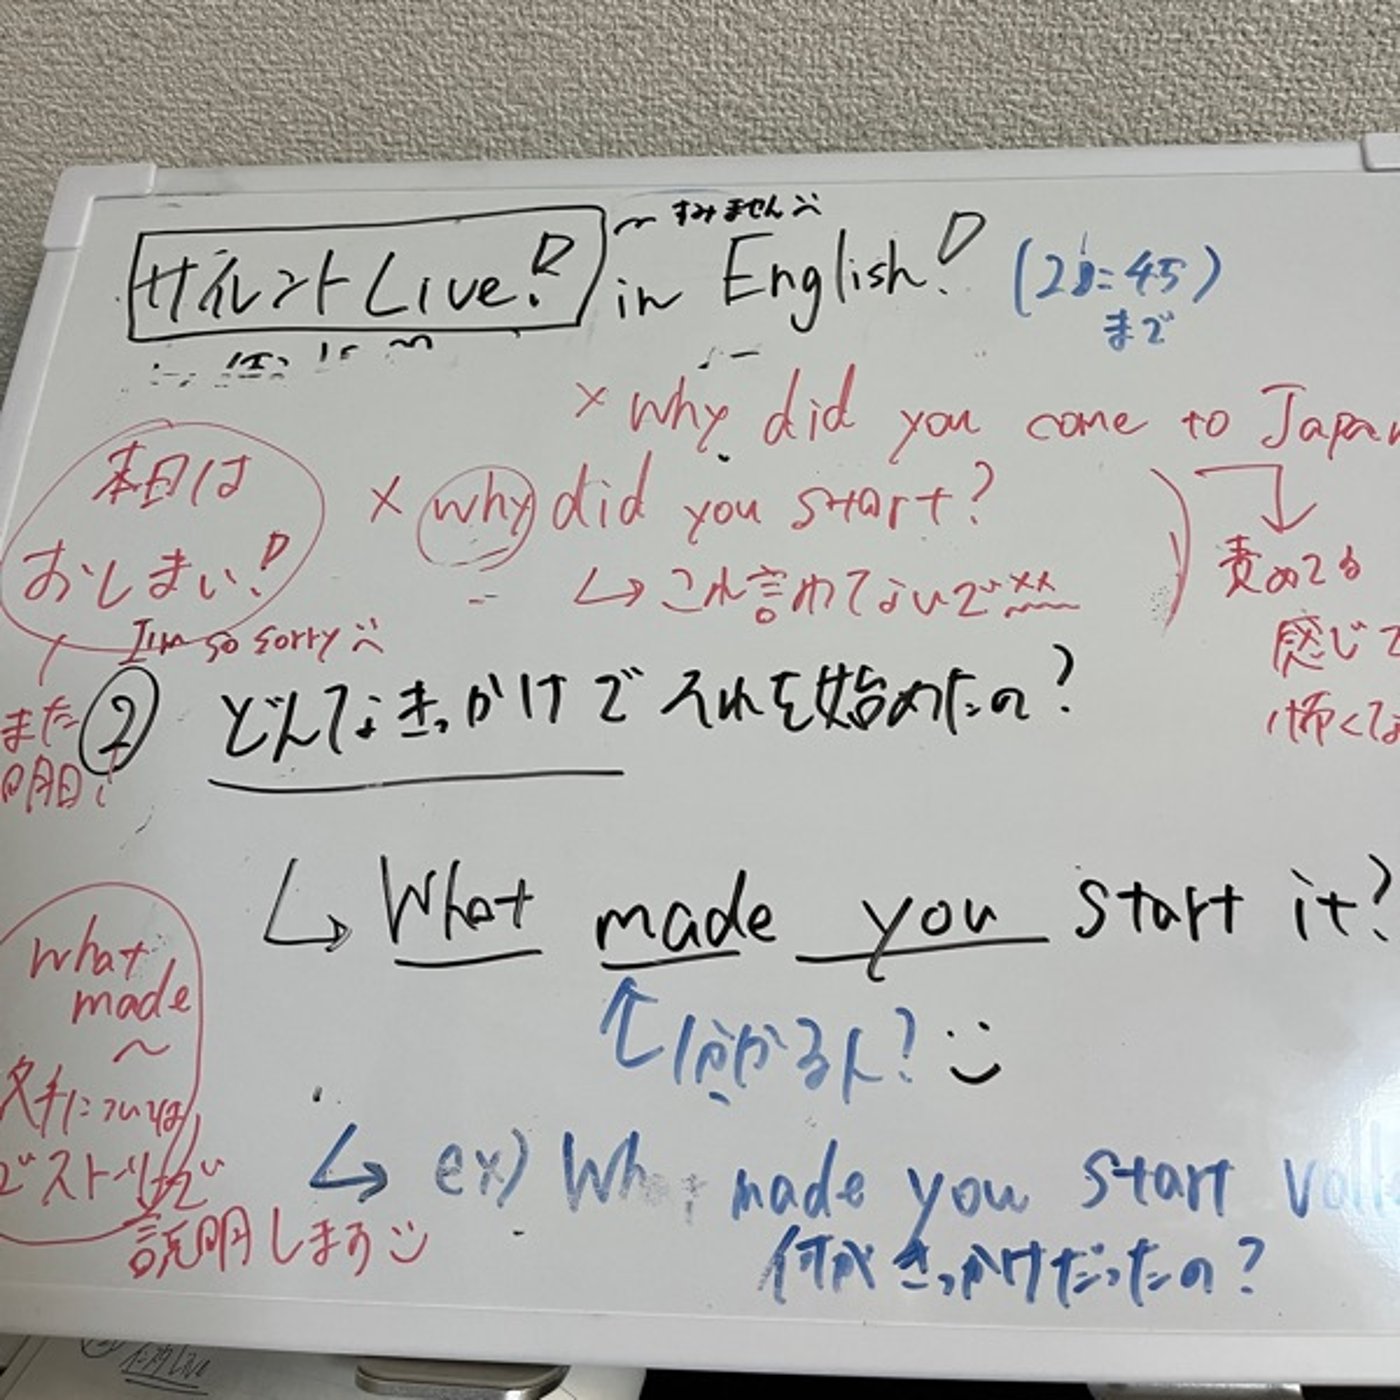 〜すみません
サイレントLive! in English!
(21:45)
まで
× why did you come to Japan
本日は
おしまい!
× why did you start?
↳ これ言わてないで××
責めてる
感じで
怖くな
I'm so sorry
また
明日!
② どんなきっかけでそれを始めたの?
↳ What made you start it?
分かる人?
what
made
〜
については
ストーリーで
説明します
↳ ex) What made you start voll
何がきっかけだったの?